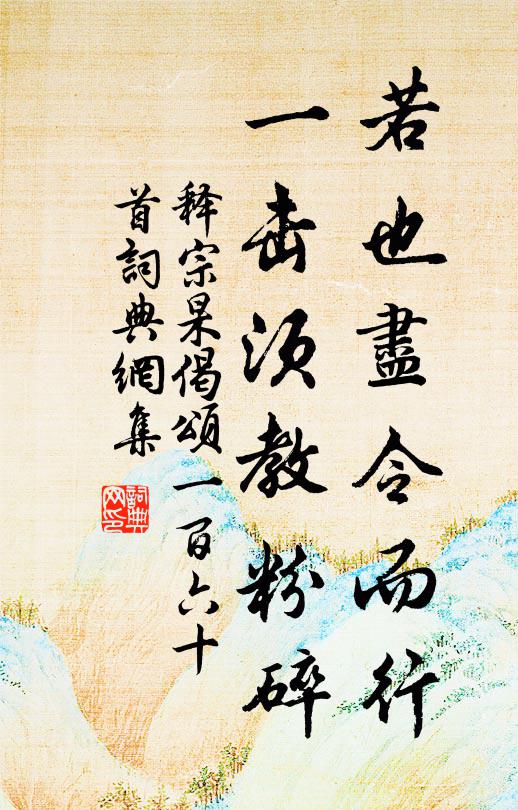 若也盡令而行
一击须教粉碎
释宗杲偈頌一百六十
首詞典網集
詞典
网印